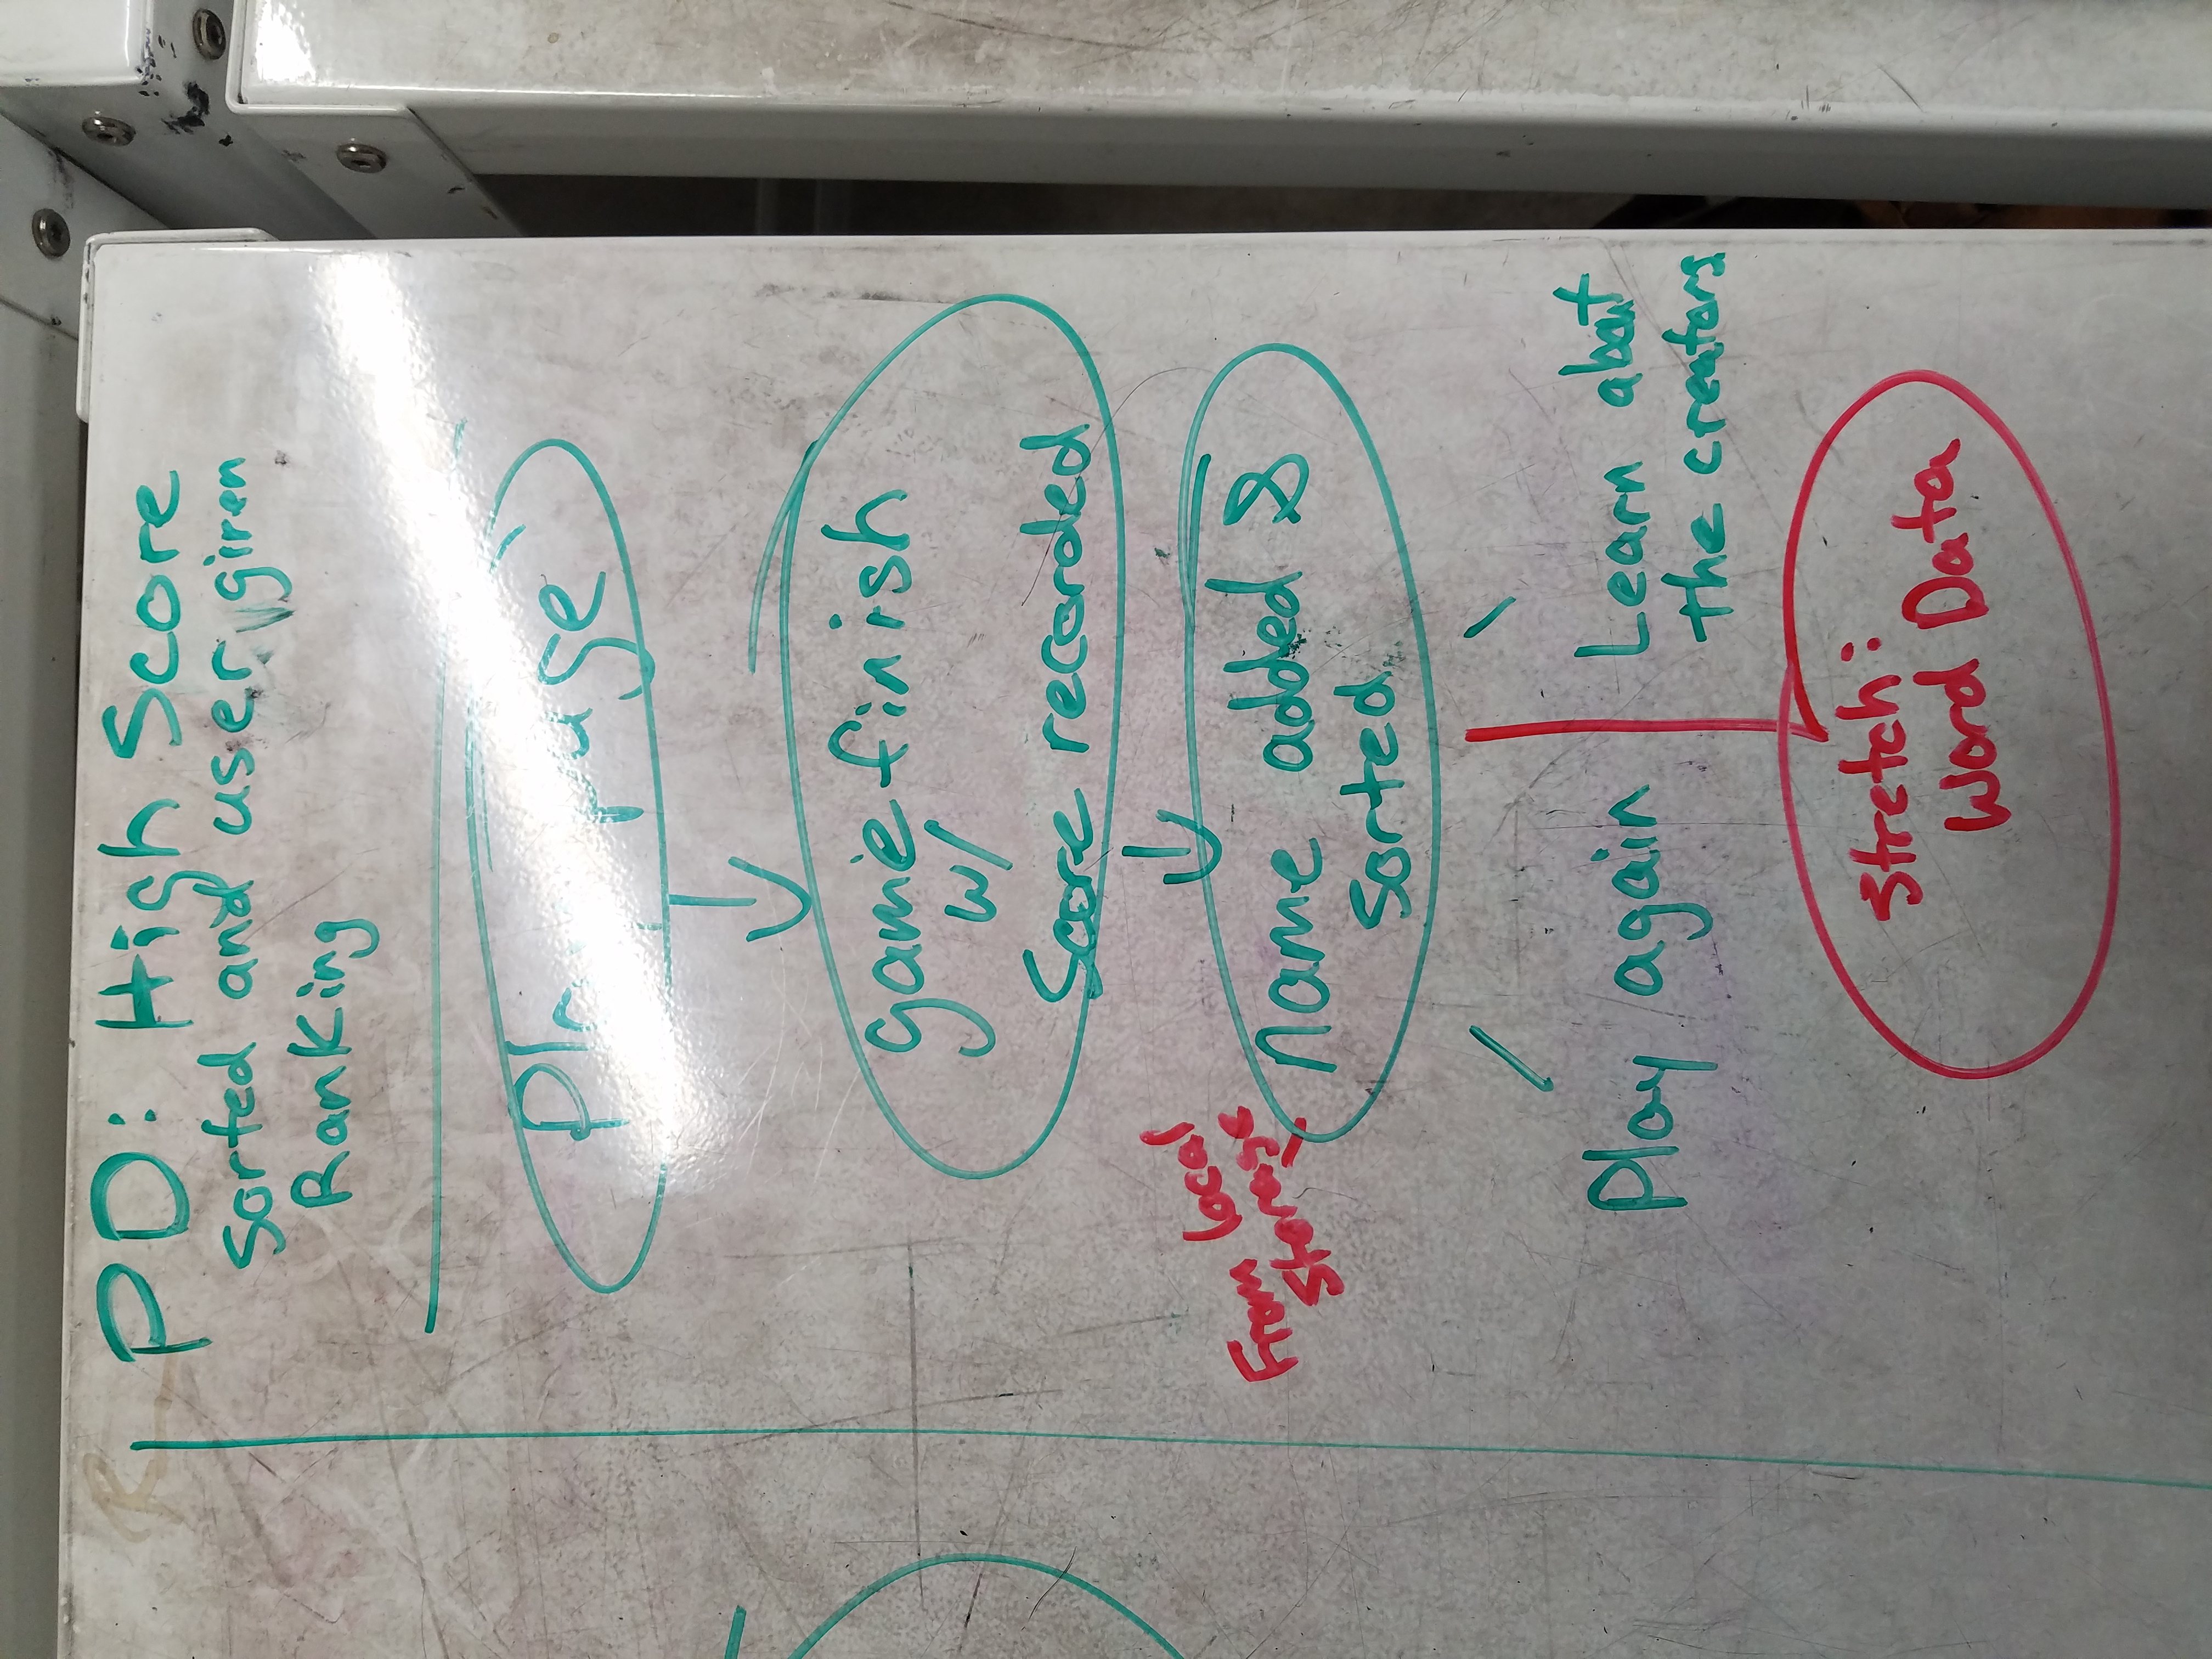 PD: High Score
Sorted and user given
Ranking
page
game finish
w/
Score recorded
From local
Storage
name added &
sorted
Play again
Learn about
the creators
Stretch:
Word Data